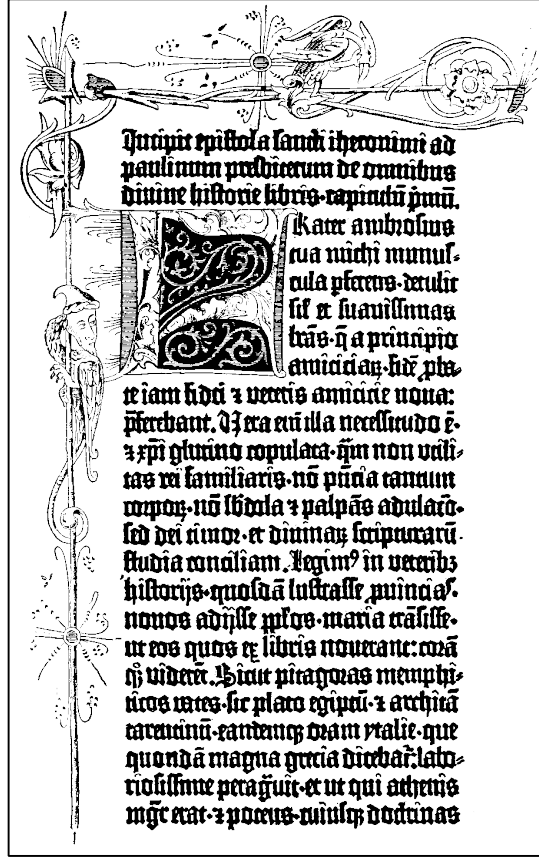 Incipit epistola sancti iheronimi ad
paulinum presbiterum de omnibus
diuine historie libris·capitulū p̄mū.
Frater ambrosius
tua michi munus-
cula ꝑferens·detulit
sil' et suauissimas
l̄ras·q̄ a principio
amiciciaꝝ·fidē ꝓba-
te iam fidei ⁊ veteris amicicie noua:
p̄ferebant. Uera eni̅ illa necessitudo ē·
⁊ xp̄i glutino copulata·qm̄ non utili-
tas rei familiaris·nō pn̄tia tantum
corpoꝝ·nō sb̄dola ⁊ palpās adulac̄o·
sed dei timor·et diuinaꝝ scripturarū
studia conciliant. Legimꝰ in veteribꝫ
historijs·quosdā lustrasse ꝓuincias·
nouos adijsse pp̄los·maria trāsisse·
ut eos quos ex libris nouerant: corā
qꝫ viderēt. Sicut pitagoras memphi-
ticos vates·sic plato egiptū·⁊ architā
tarentinū·eandemqꝫ oram ytalie·que
quondā magna grecia dicebat̄: labo-
riosissime perag̅uit·et ut qui athenis
mgr̄ erat·⁊ potens·cuiusqꝫ doctrinas